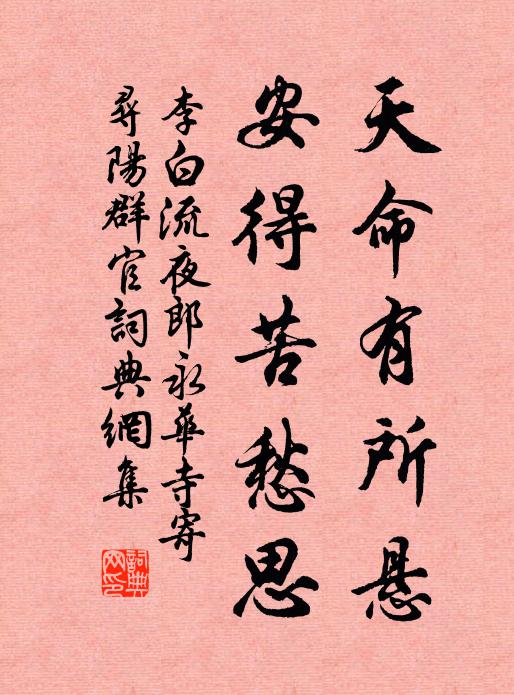 天命有所懸
安得苦愁思
李白流夜郎永華寺寄
尋陽群官詞典網集
詞典網印